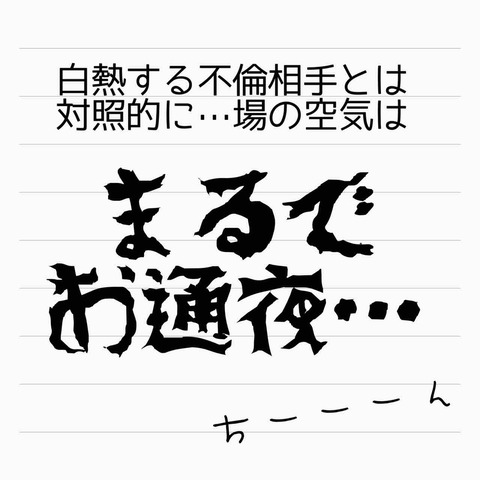 白熱する不倫相手とは
対照的に…場の空気は
まるで
お通夜…
ちーーーん